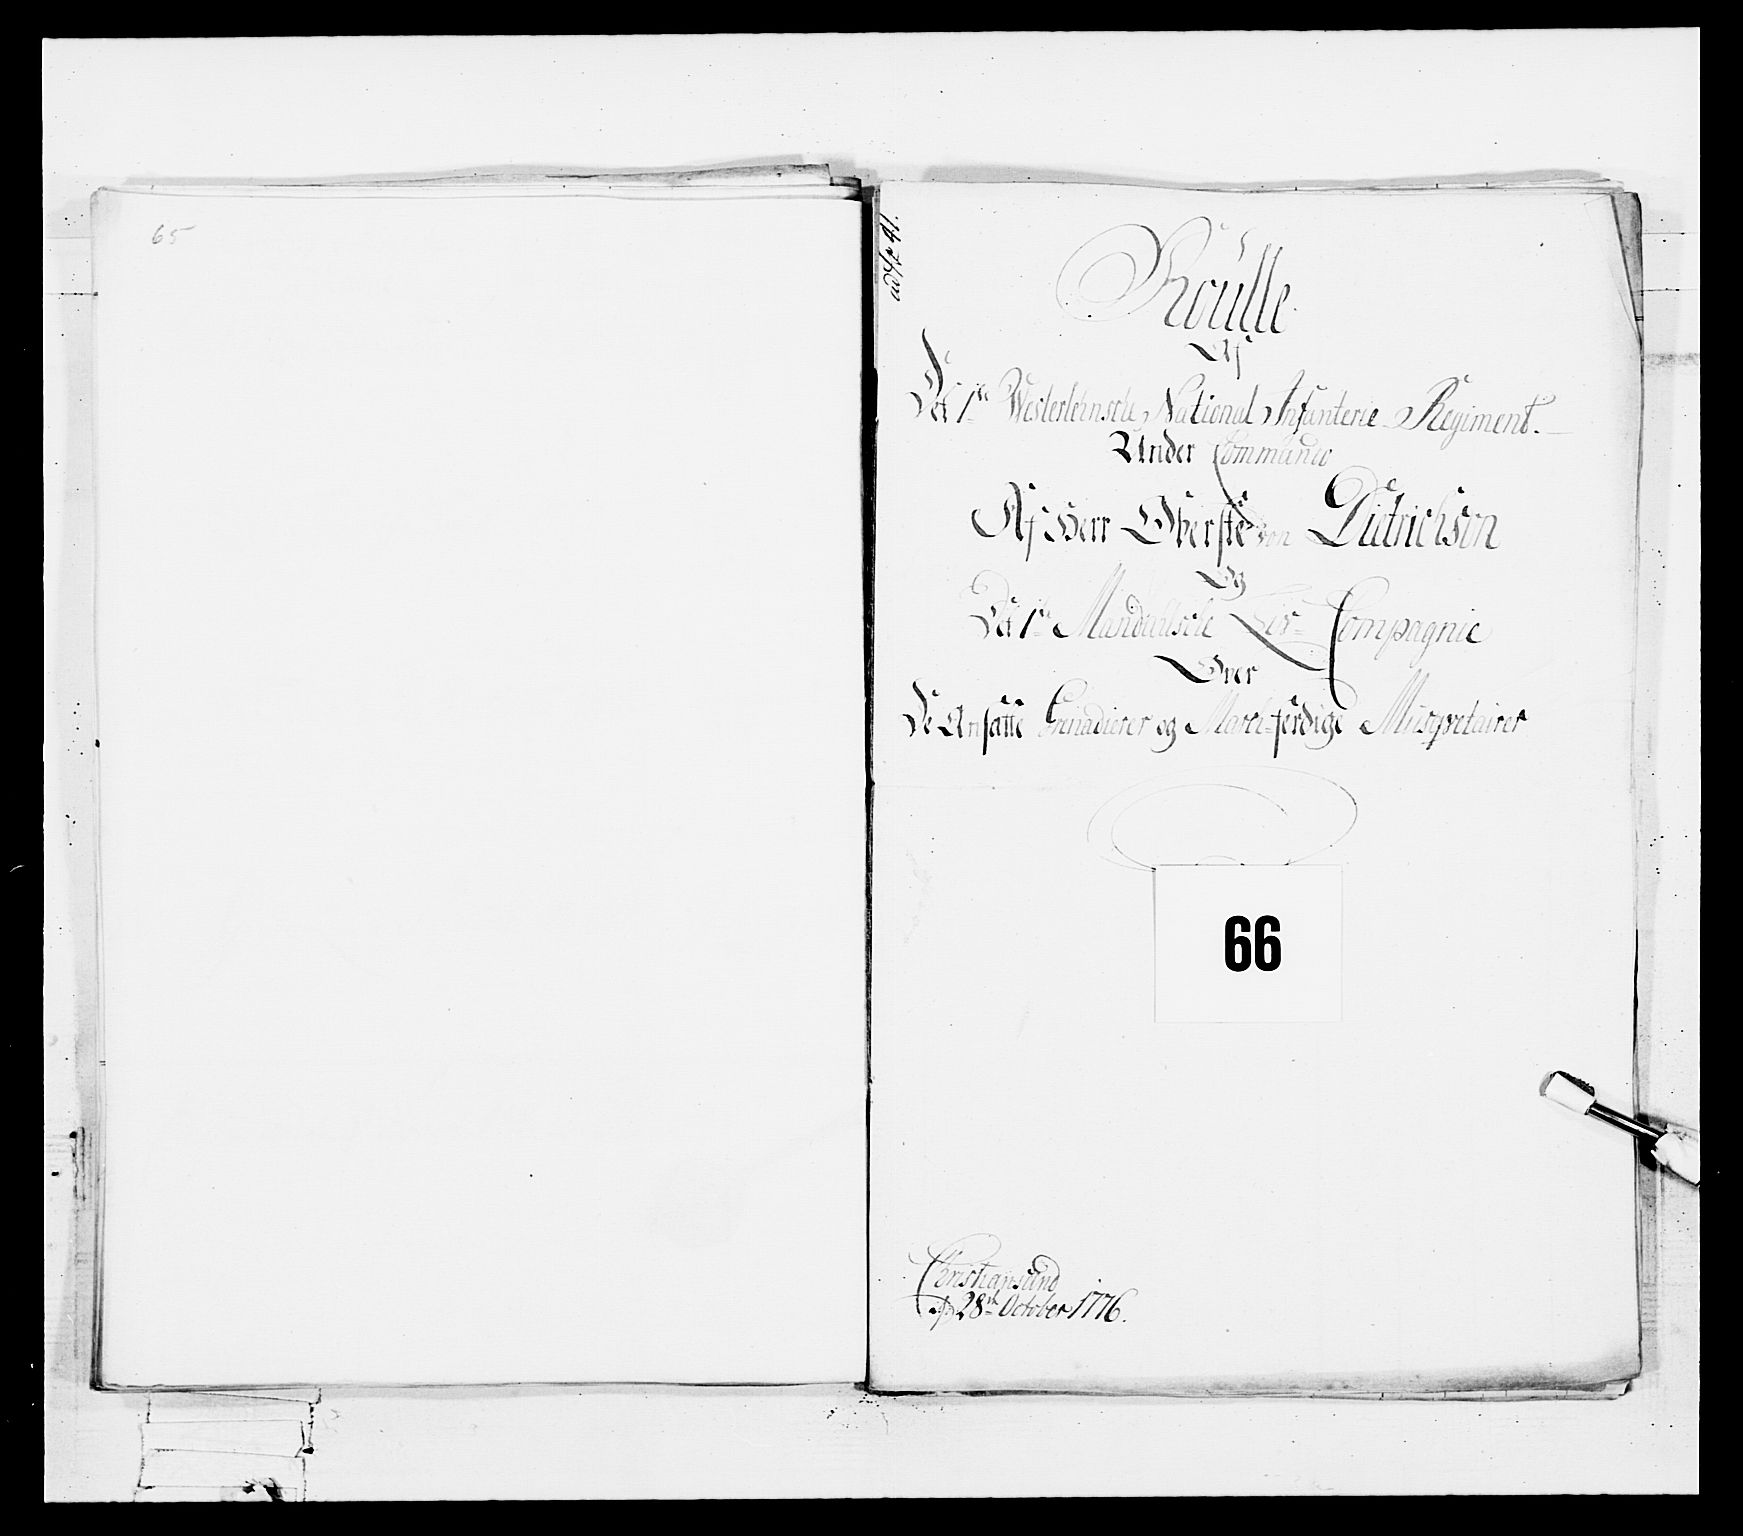 65
Roulle
Af
Det 1ste Westerlehnsche National Infanterie Regiment.
Under Commando
Af Herr Oberste von Dietrichson
Og
Det 1ste Mandahlsche Liv Compagnie
Over
De Ansatte Grenadierer og March-færdige Musqvetairer
66
Christiansand
d 28de October 1776.